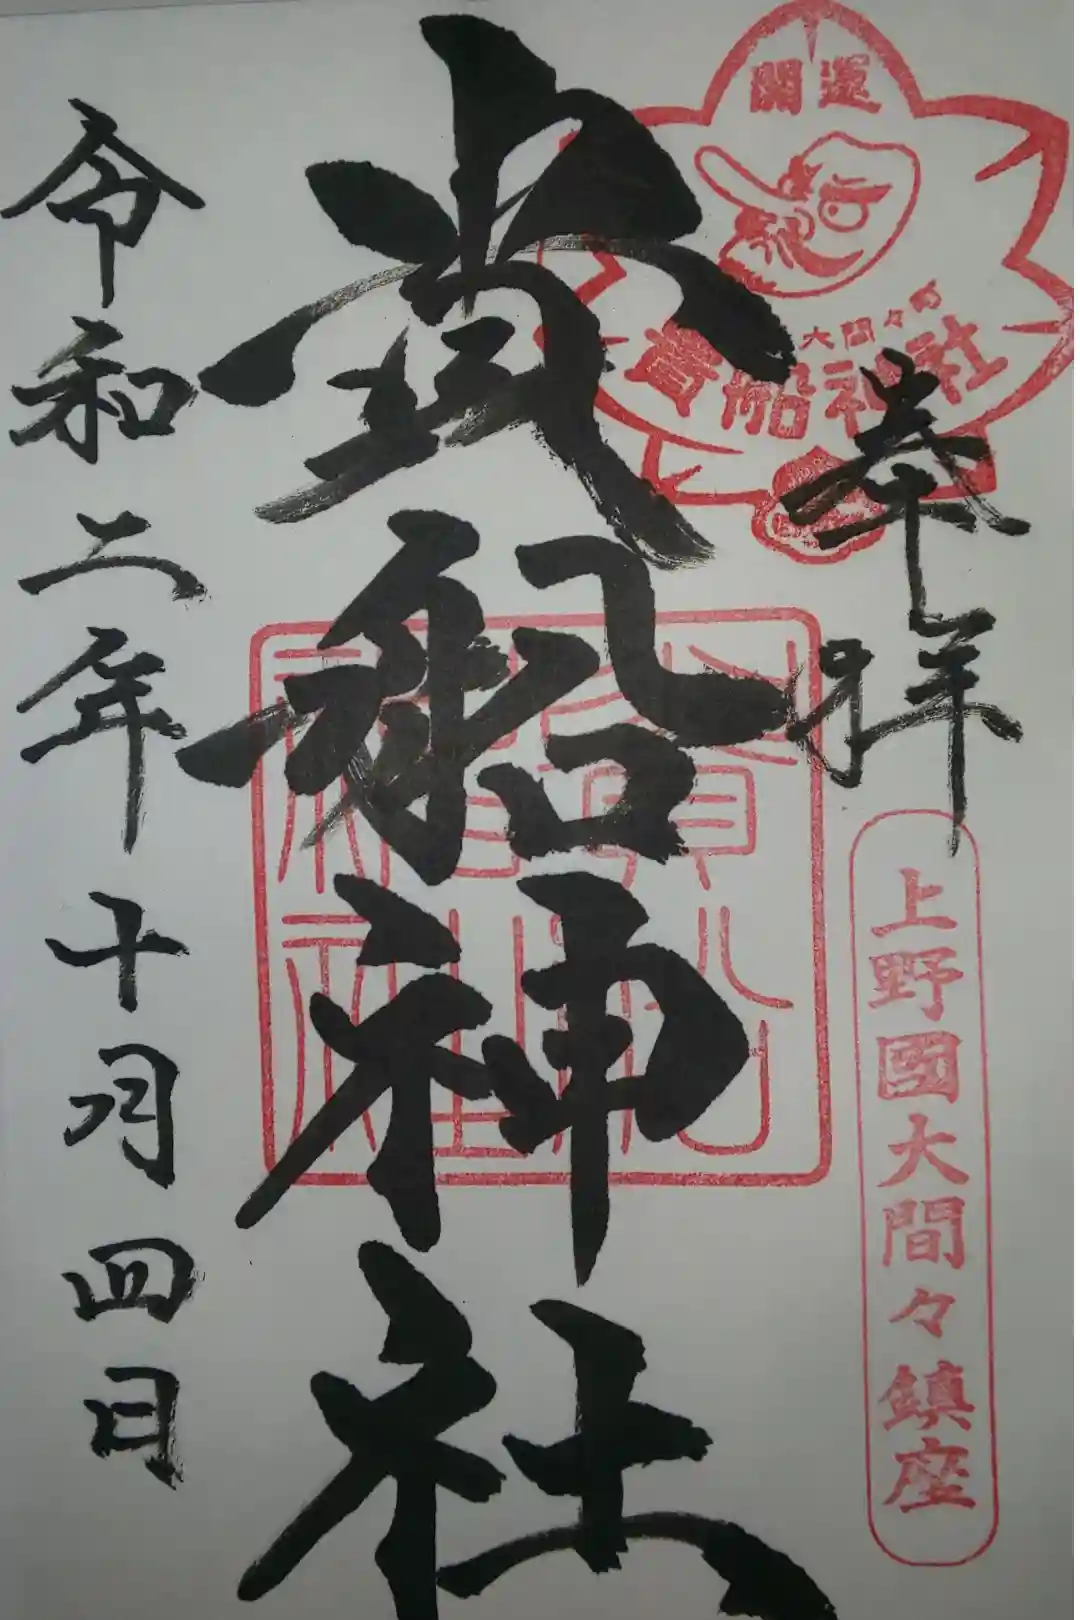 開運
大間々の
貴船神社
奉拝
上野國大間々鎮座
貴船神社
貴船神社
令和二年十月四日